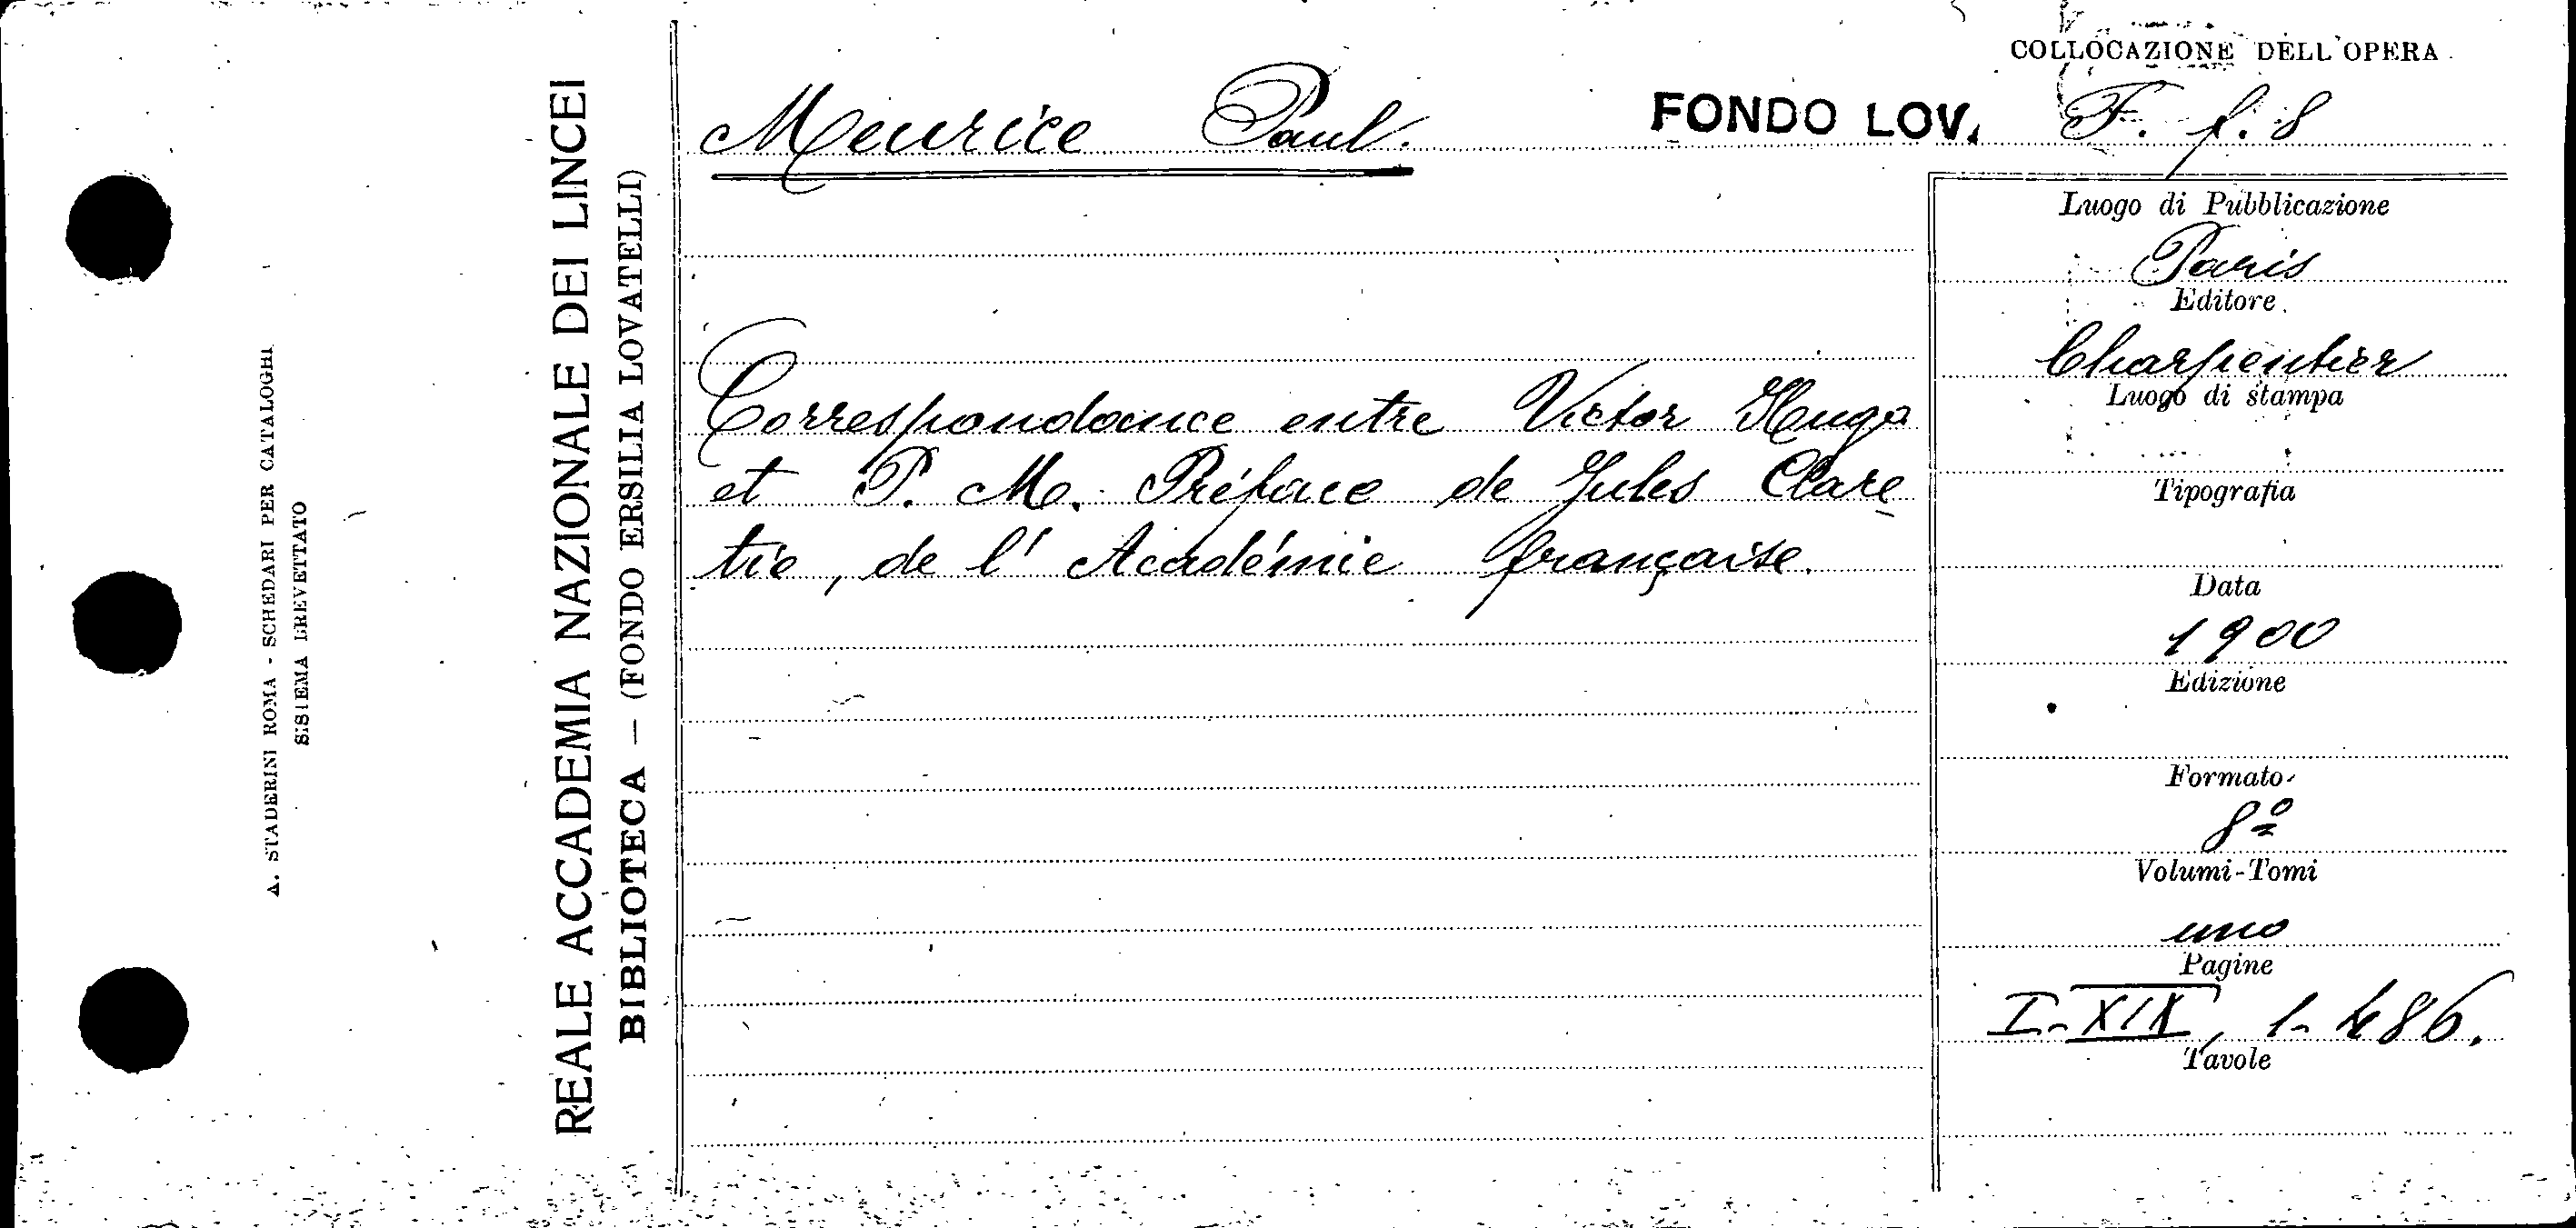 A. STADERINI ROMA - SCHEDARI PER CATALOGHI
SISTEMA BREVETTATO
REALE ACCADEMIA NAZIONALE DEI LINCEI
BIBLIOTECA — (FONDO ERSILIA LOVATELLI)
COLLOCAZIONE DELL'OPERA
Meurice Paul. FONDO LOV. F. f. 8
Correspondance entre Victor Hugo
et P. M. Préface de Jules Clare
tie, de l'Académie française.
Luogo di Pubblicazione
Paris
Editore
Charpentier
Luogo di stampa
Tipografia
Data
1900
Edizione
Formato
8º
Volumi-Tomi
uno
Pagine
I-XIX, 1-486.
Tavole